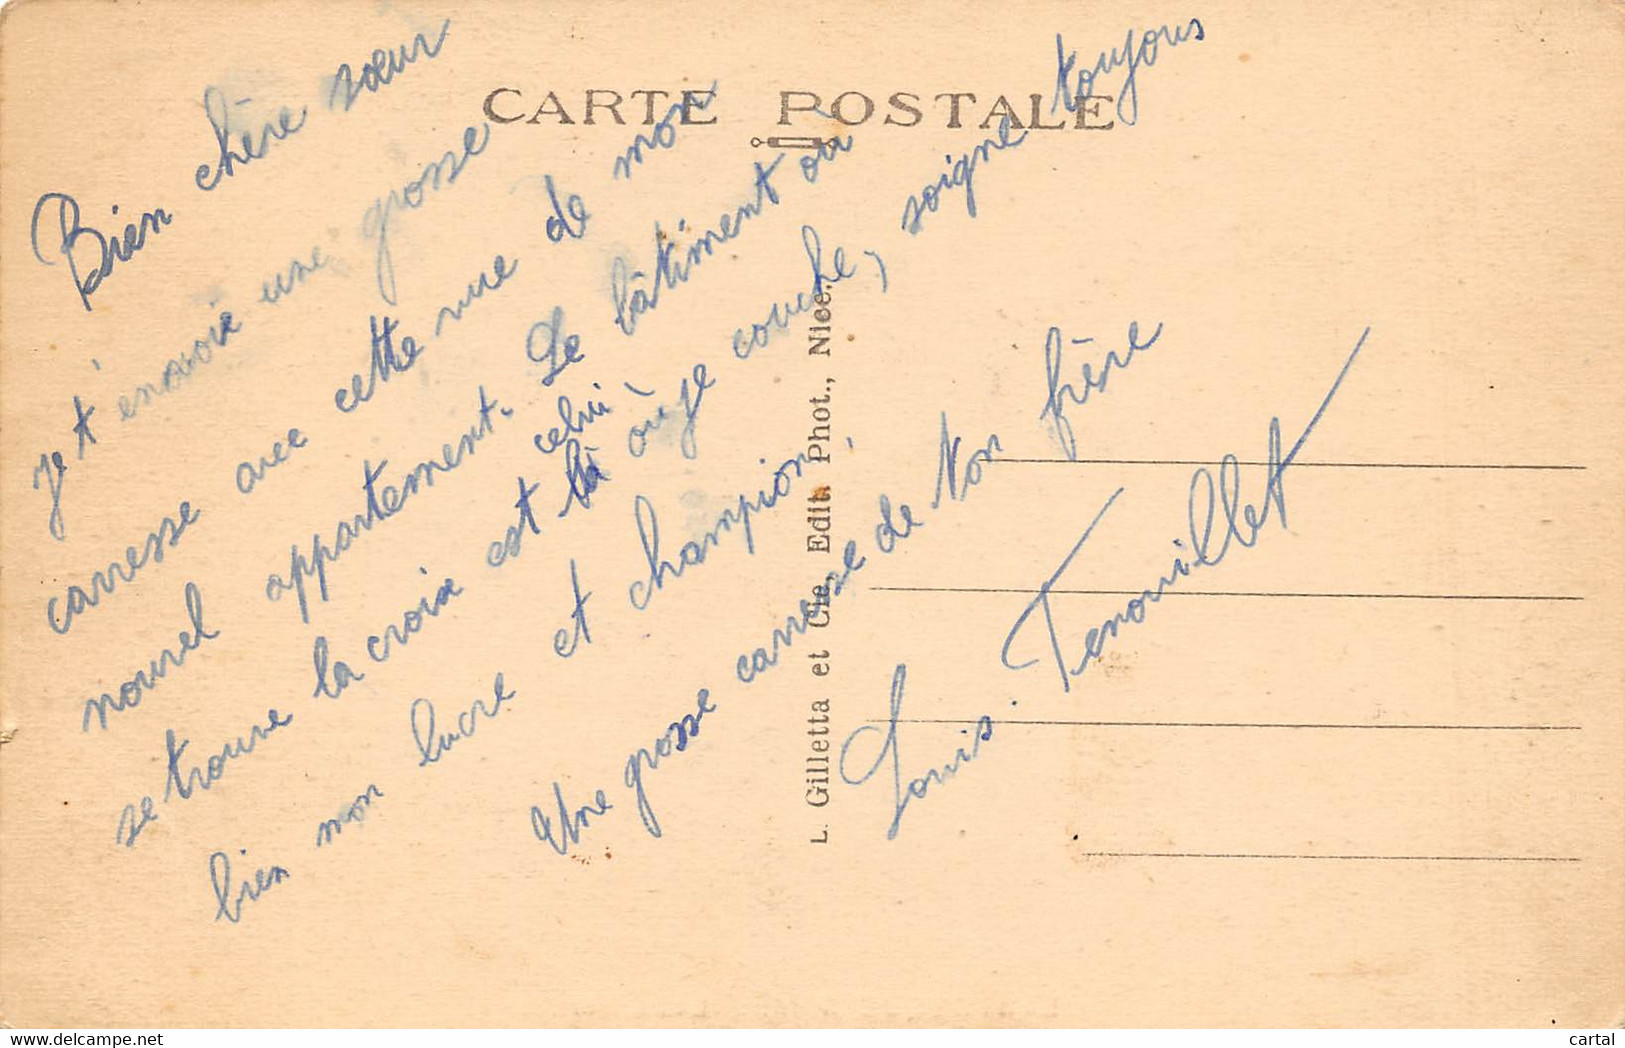 CARTE POSTALE
Bien chère sœur
Je t'envoie une grosse
carresse avec cette vue de mon
nouvel appartement. Le bâtiment où
se trouve la croix est celui là où je couche, soigne toujours
bien mon lucre et champion,
Une grosse carresse de ton frère
Louis. Tenouillet
L. Gilletta et Cie, Edit. Phot., Nice.
delcampe.net
cartal